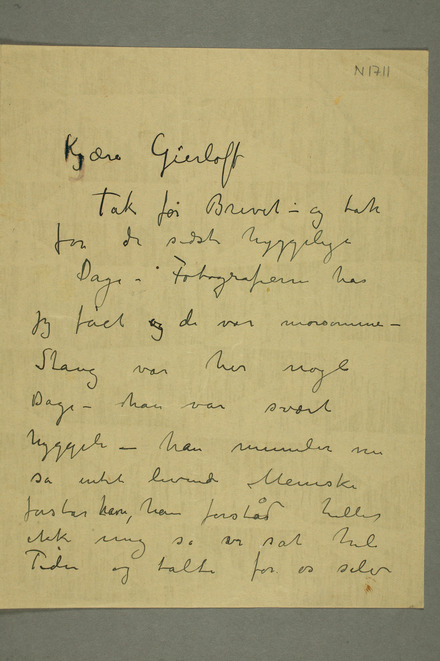 N 1711
Kjære Gierløff
Tak for Brevet – og tak
for de sidste hyggelige
Dage – Fotografierne har
jeg fået og de var morsomme –
Stang var her nogle
Dage – han var svært
hyggeli – han mumler nu
så intet levende Menneske
forstår ham, han forstod heller
ikke mig så vi sat hele
Tiden og talte for os selv